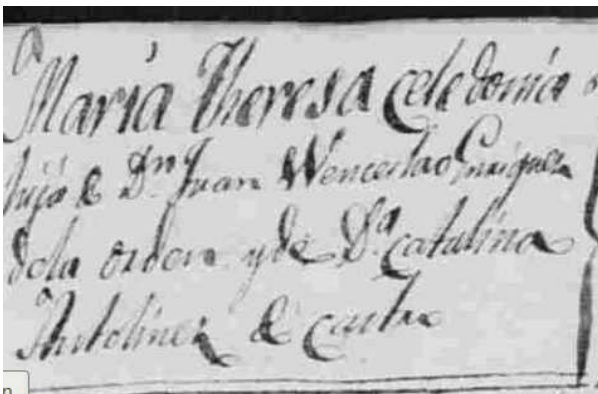 María Theresa Celedonia
hija de Dn. Juan Wenceslao Enriquez
dela orden y de Da. Catalina
Antolinez de Castro
n